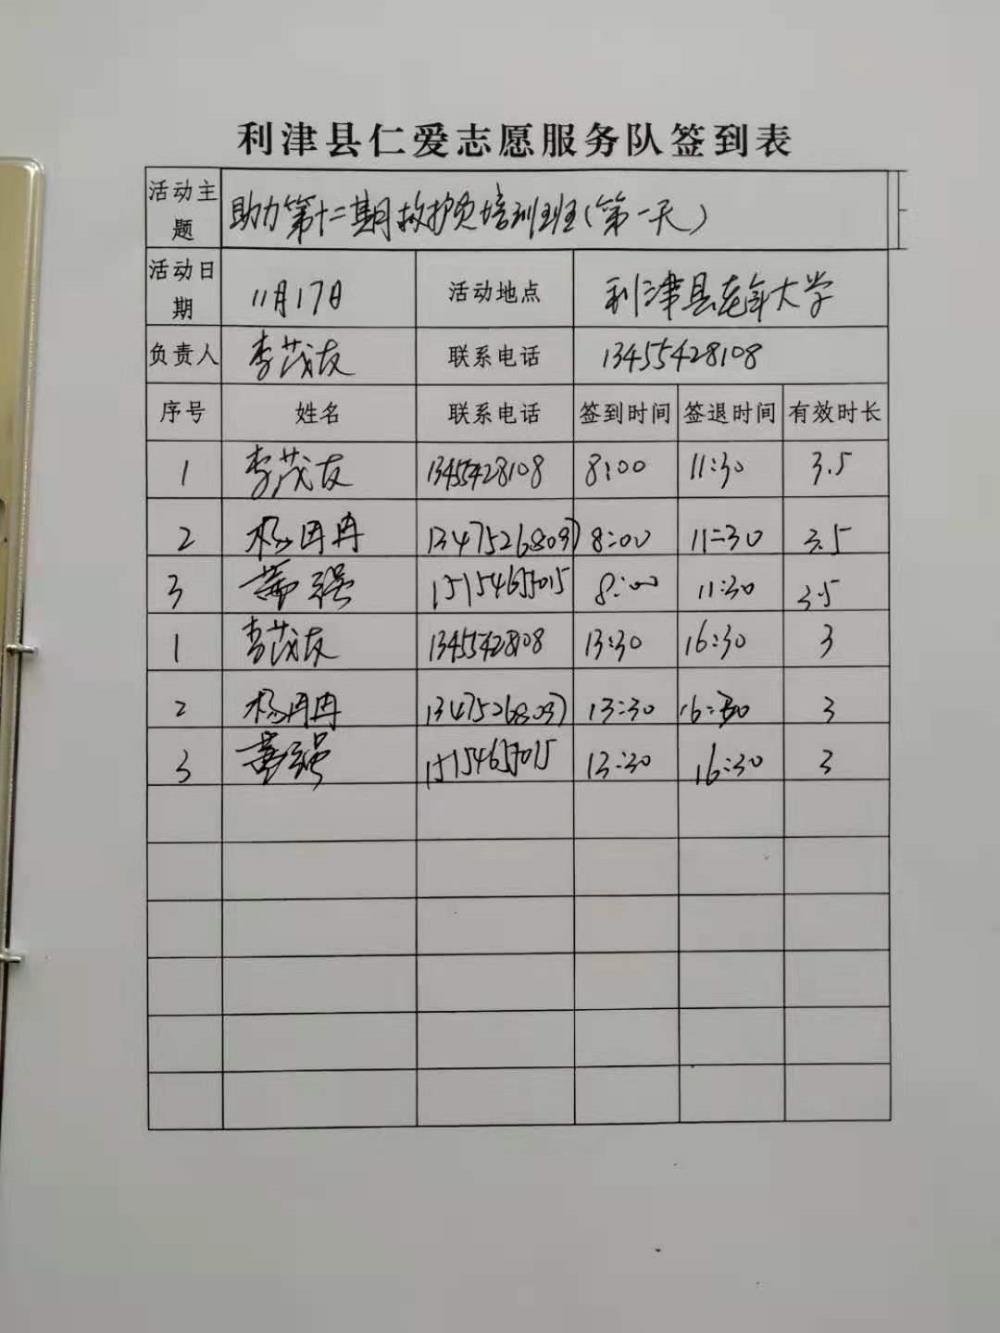 利津县仁爱志愿服务队签到表
活动主题 助力第十二期救护员培训班(第一天)
活动日期 11月17日 活动地点 利津县老年大学
负责人 李茂友 联系电话 13455428108
序号 姓名 联系电话 签到时间 签退时间 有效时长
1 李茂友 13455428108 8:00 11:30 3.5
2 杨冉冉 13475268097 8:00 11:30 3.5
3 强 8:00 11:30 3.5
1 李茂友 13:30 16:30 3
2 杨冉冉 13:30 16:30 3
3 强 13:30 16:30 3